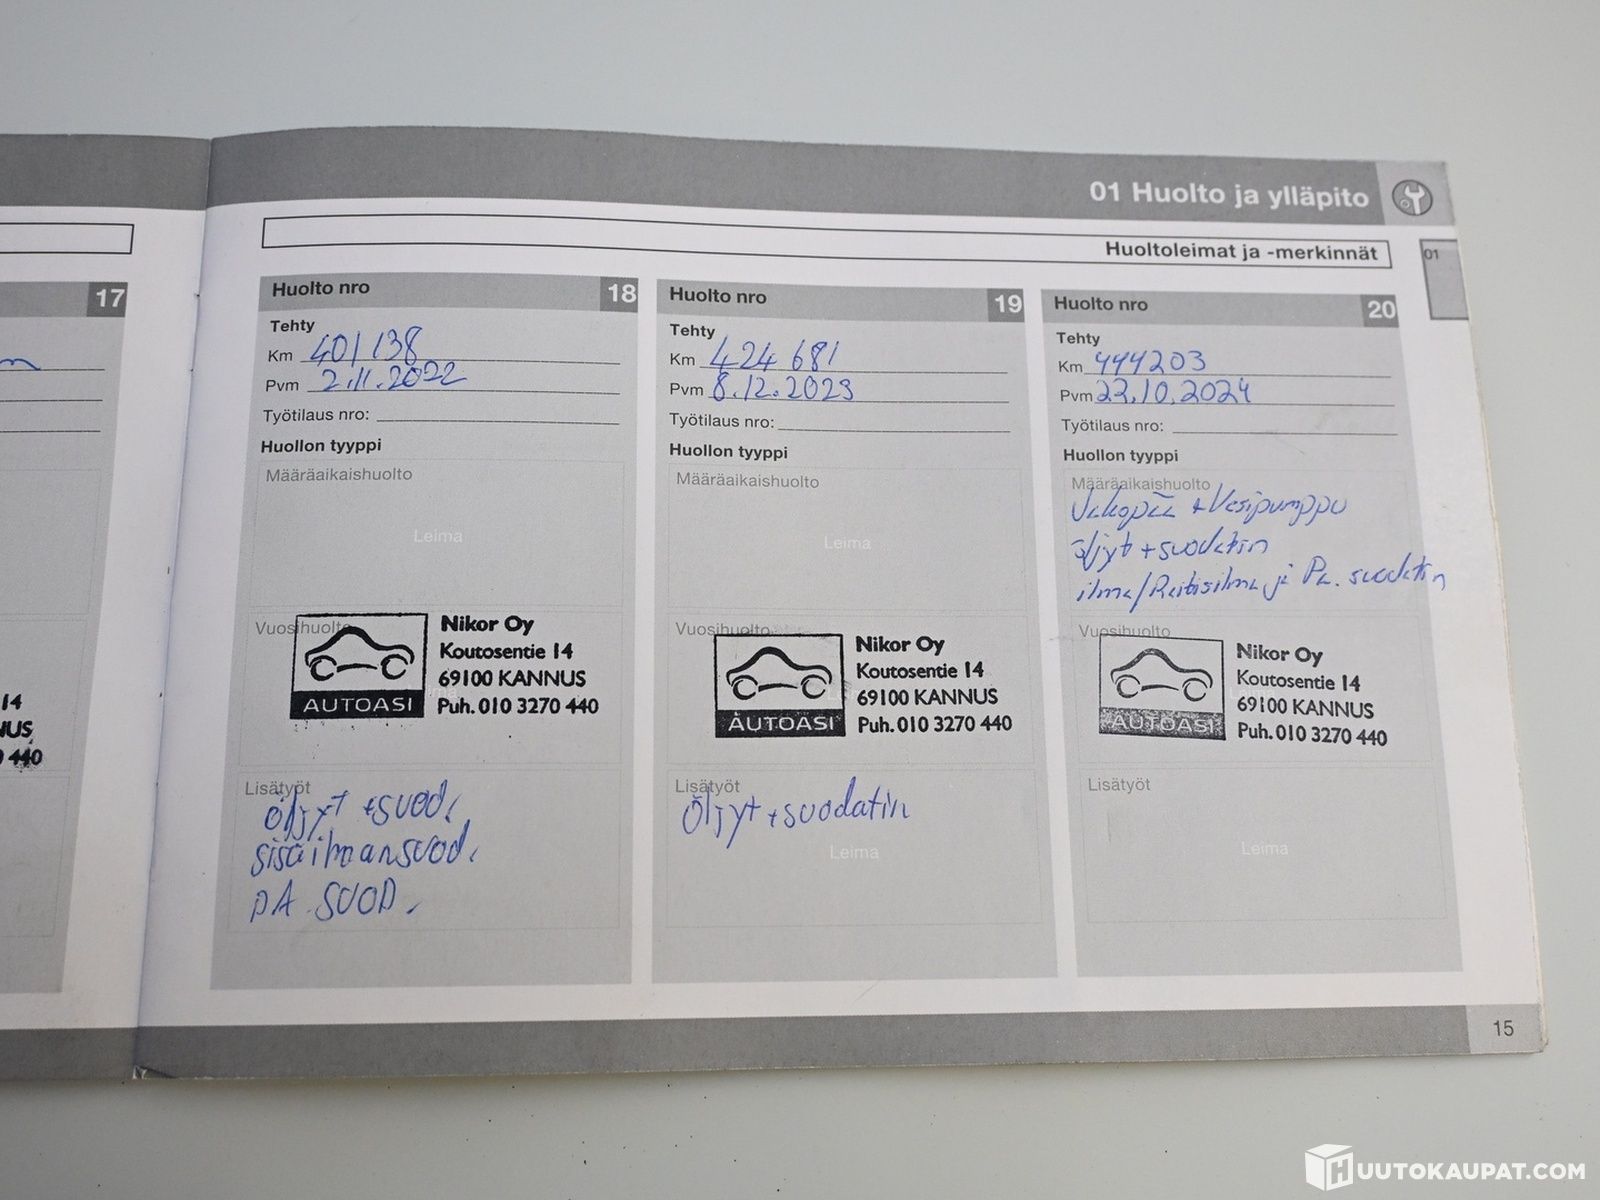 01 Huolto ja ylläpito
Huoltoleimat ja -merkinnät
01
17
14
NUS
440
Huolto nro 18
Tehty
Km 401 138
Pvm 2.11.2022
Työtilaus nro:
Huollon tyyppi
Määräaikaishuolto
Leima
Vuosihuolto
AUTOASI
Nikor Oy
Koutosentie 14
69100 KANNUS
Puh. 010 3270 440
Lisätyöt
öljyt + suod.
sisäilmansuod.
PA. SUOD.
Huolto nro 19
Tehty
Km 424 681
Pvm 8.12.2023
Työtilaus nro:
Huollon tyyppi
Määräaikaishuolto
Leima
Vuosihuolto
AUTOASI
Nikor Oy
Koutosentie 14
69100 KANNUS
Puh. 010 3270 440
Lisätyöt
Öljyt + suodatin
Leima
Huolto nro 20
Tehty
Km 444203
Pvm 22.10.2024
Työtilaus nro:
Huollon tyyppi
Määräaikaishuolto
Jakopää + Vesipumppu
öljyt + suodatin
ilma/Raitisilma ja Pa. suodatin
Vuosihuolto
AUTOASI
Nikor Oy
Koutosentie 14
69100 KANNUS
Puh. 010 3270 440
Lisätyöt
Leima
15
HUUTOKAUPAT.COM